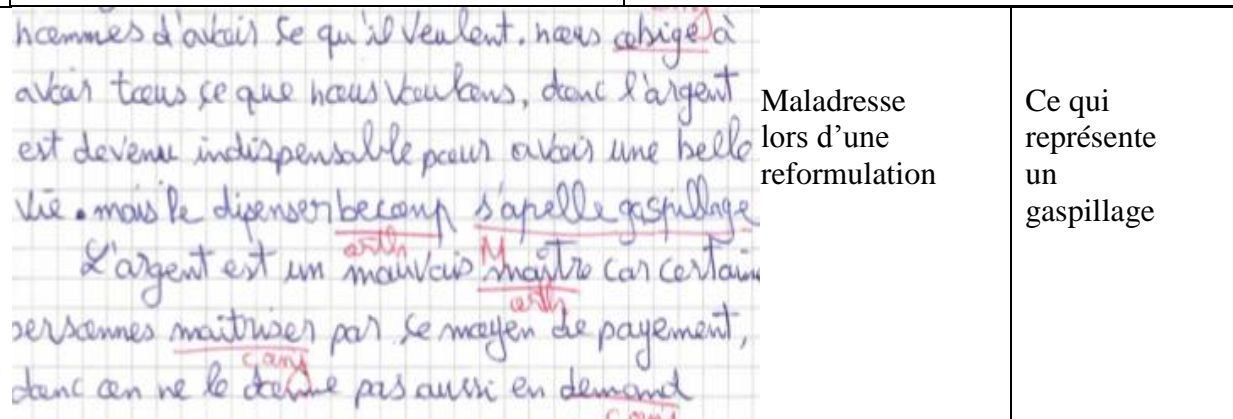 hommes d'avoir ce qu'il veulent. nous obigé à
avoir tous ce que nous voulons, donc l'argent
est devenu indispensable pour avoir une belle
vie. mais le dipenser becoup s'apelle gaspillage
orth M
L'argent est un mauvais maître car certain
orth
personnes maitriser par ce moyen de payement,
conj
donc on ne le donne pas aussi en demand
Maladresse
lors d'une
reformulation
Ce qui
représente
un
gaspillage